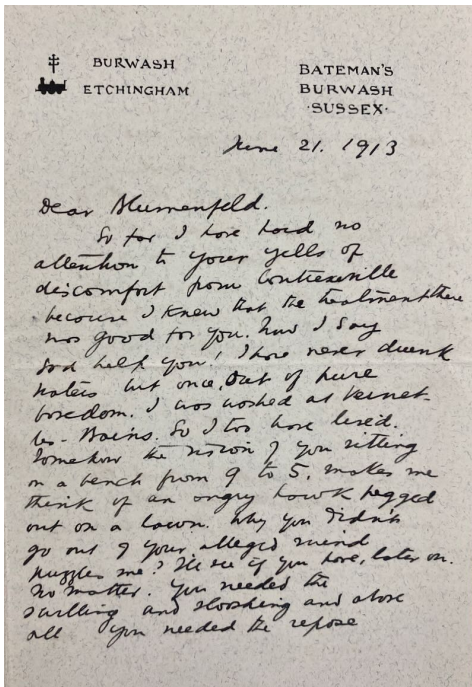 BURWASH
ETCHINGHAM
BATEMAN'S
BURWASH
·SUSSEX·
June 21. 1913
Dear Blumenfeld.
So far I have paid no
attention to your yells of
discomfort from Contrexeville
because I knew that the treatment there
was good for you. Now I say
God help you! I have never drunk
waters but once, out of pure
boredom. I was washed at Vernet-
les-Bains. So I too have lived.
Somehow the vision of you sitting
on a bench from 9 to 5. makes me
think of an angry hawk pegged
out on a lawn. Why you didn't
go out of your alleged mind
puzzles me? We see if you have, later on.
No matter. You needed the
swilling and sloshing and above
all you needed the repose